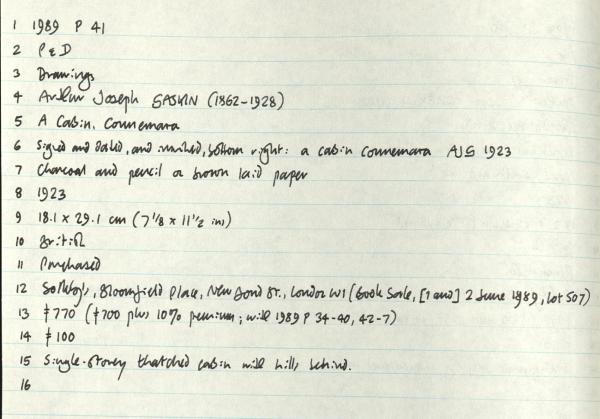 1 1989 P 41
2 P & D
3 Drawings
4 Arthur Joseph GASKIN (1862-1928)
5 A Cabin, Connemara
6 Signed and dated, and inscribed, bottom right: a cabin connemara AJG 1923
7 Charcoal and pencil on brown laid paper
8 1923
9 18.1 x 29.1 cm (7 1/8 x 11 1/2 ins)
10 British
11 Purchased
12 Sotheby's, Bloomfield Place, New Bond St., London W1 (Book Sale, [1 and] 2 June 1989, lot 507)
13 £770 (£700 plus 10% premium; with 1989 P 34-40, 42-7)
14 £100
15 Single-storey thatched cabin with hills behind.
16